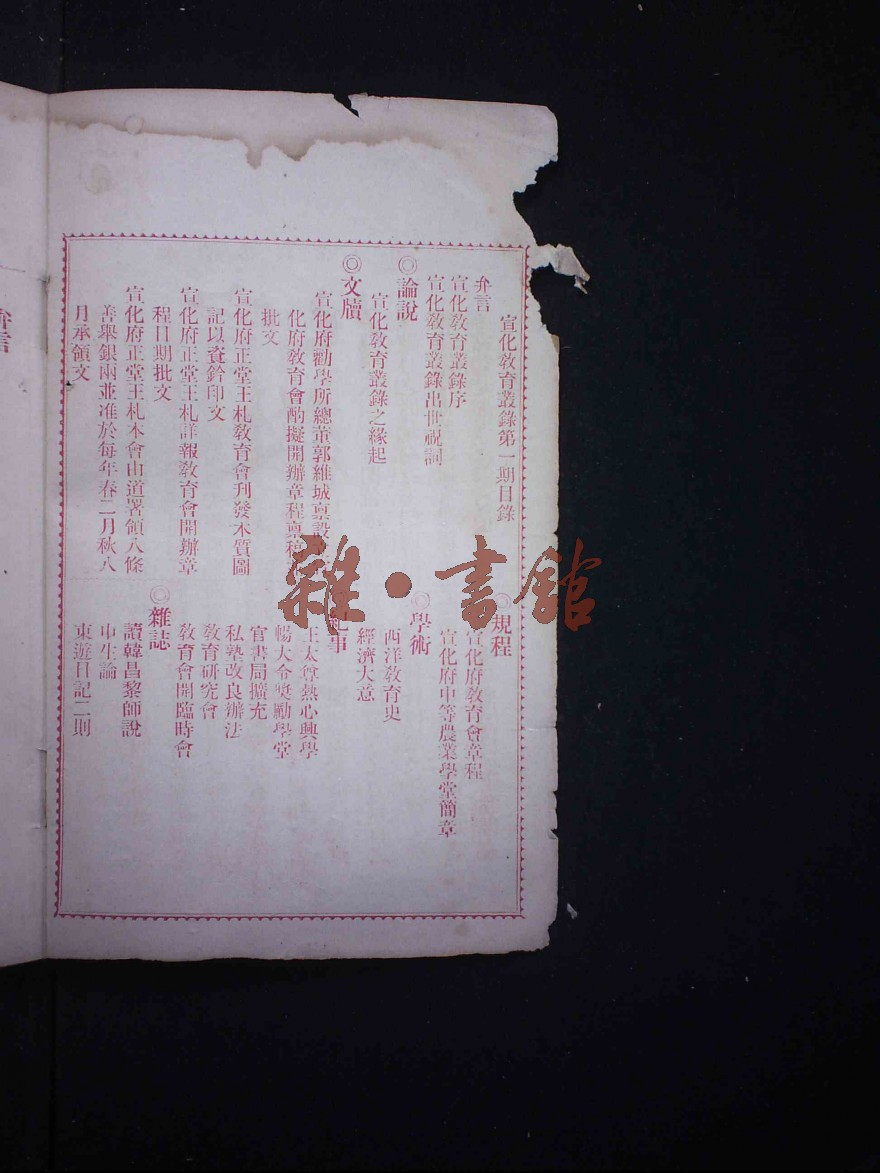 宣化教育叢錄第一期目錄
弁言
宣化教育叢錄序
宣化教育叢錄出世祝詞
◎論說
宣化教育叢錄之緣起
◎文牘
宣化府勸學所總董郭維城禀設
化府教育會酌擬開辦章程禀稿
批文
宣化府正堂王札教育會刊發木質圖
記以資鈐印文
宣化府正堂王札詳報教育會開辦章
程日期批文
宣化府正堂王札本會由道署領八條
善舉銀兩並准於每年春二月秋八
月承領文
◎規程
宣化府教育會章程
宣化府中等農業學堂簡章
◎學術
西洋教育史
經濟大意
事
王太尊熱心興學
暢大令獎勵學堂
官書局擴充
私塾改良辦法
教育研究會
教育會開臨時會
◎雜誌
讀韓昌黎師說
中生論
東遊日記二則
弁言
雜·書館